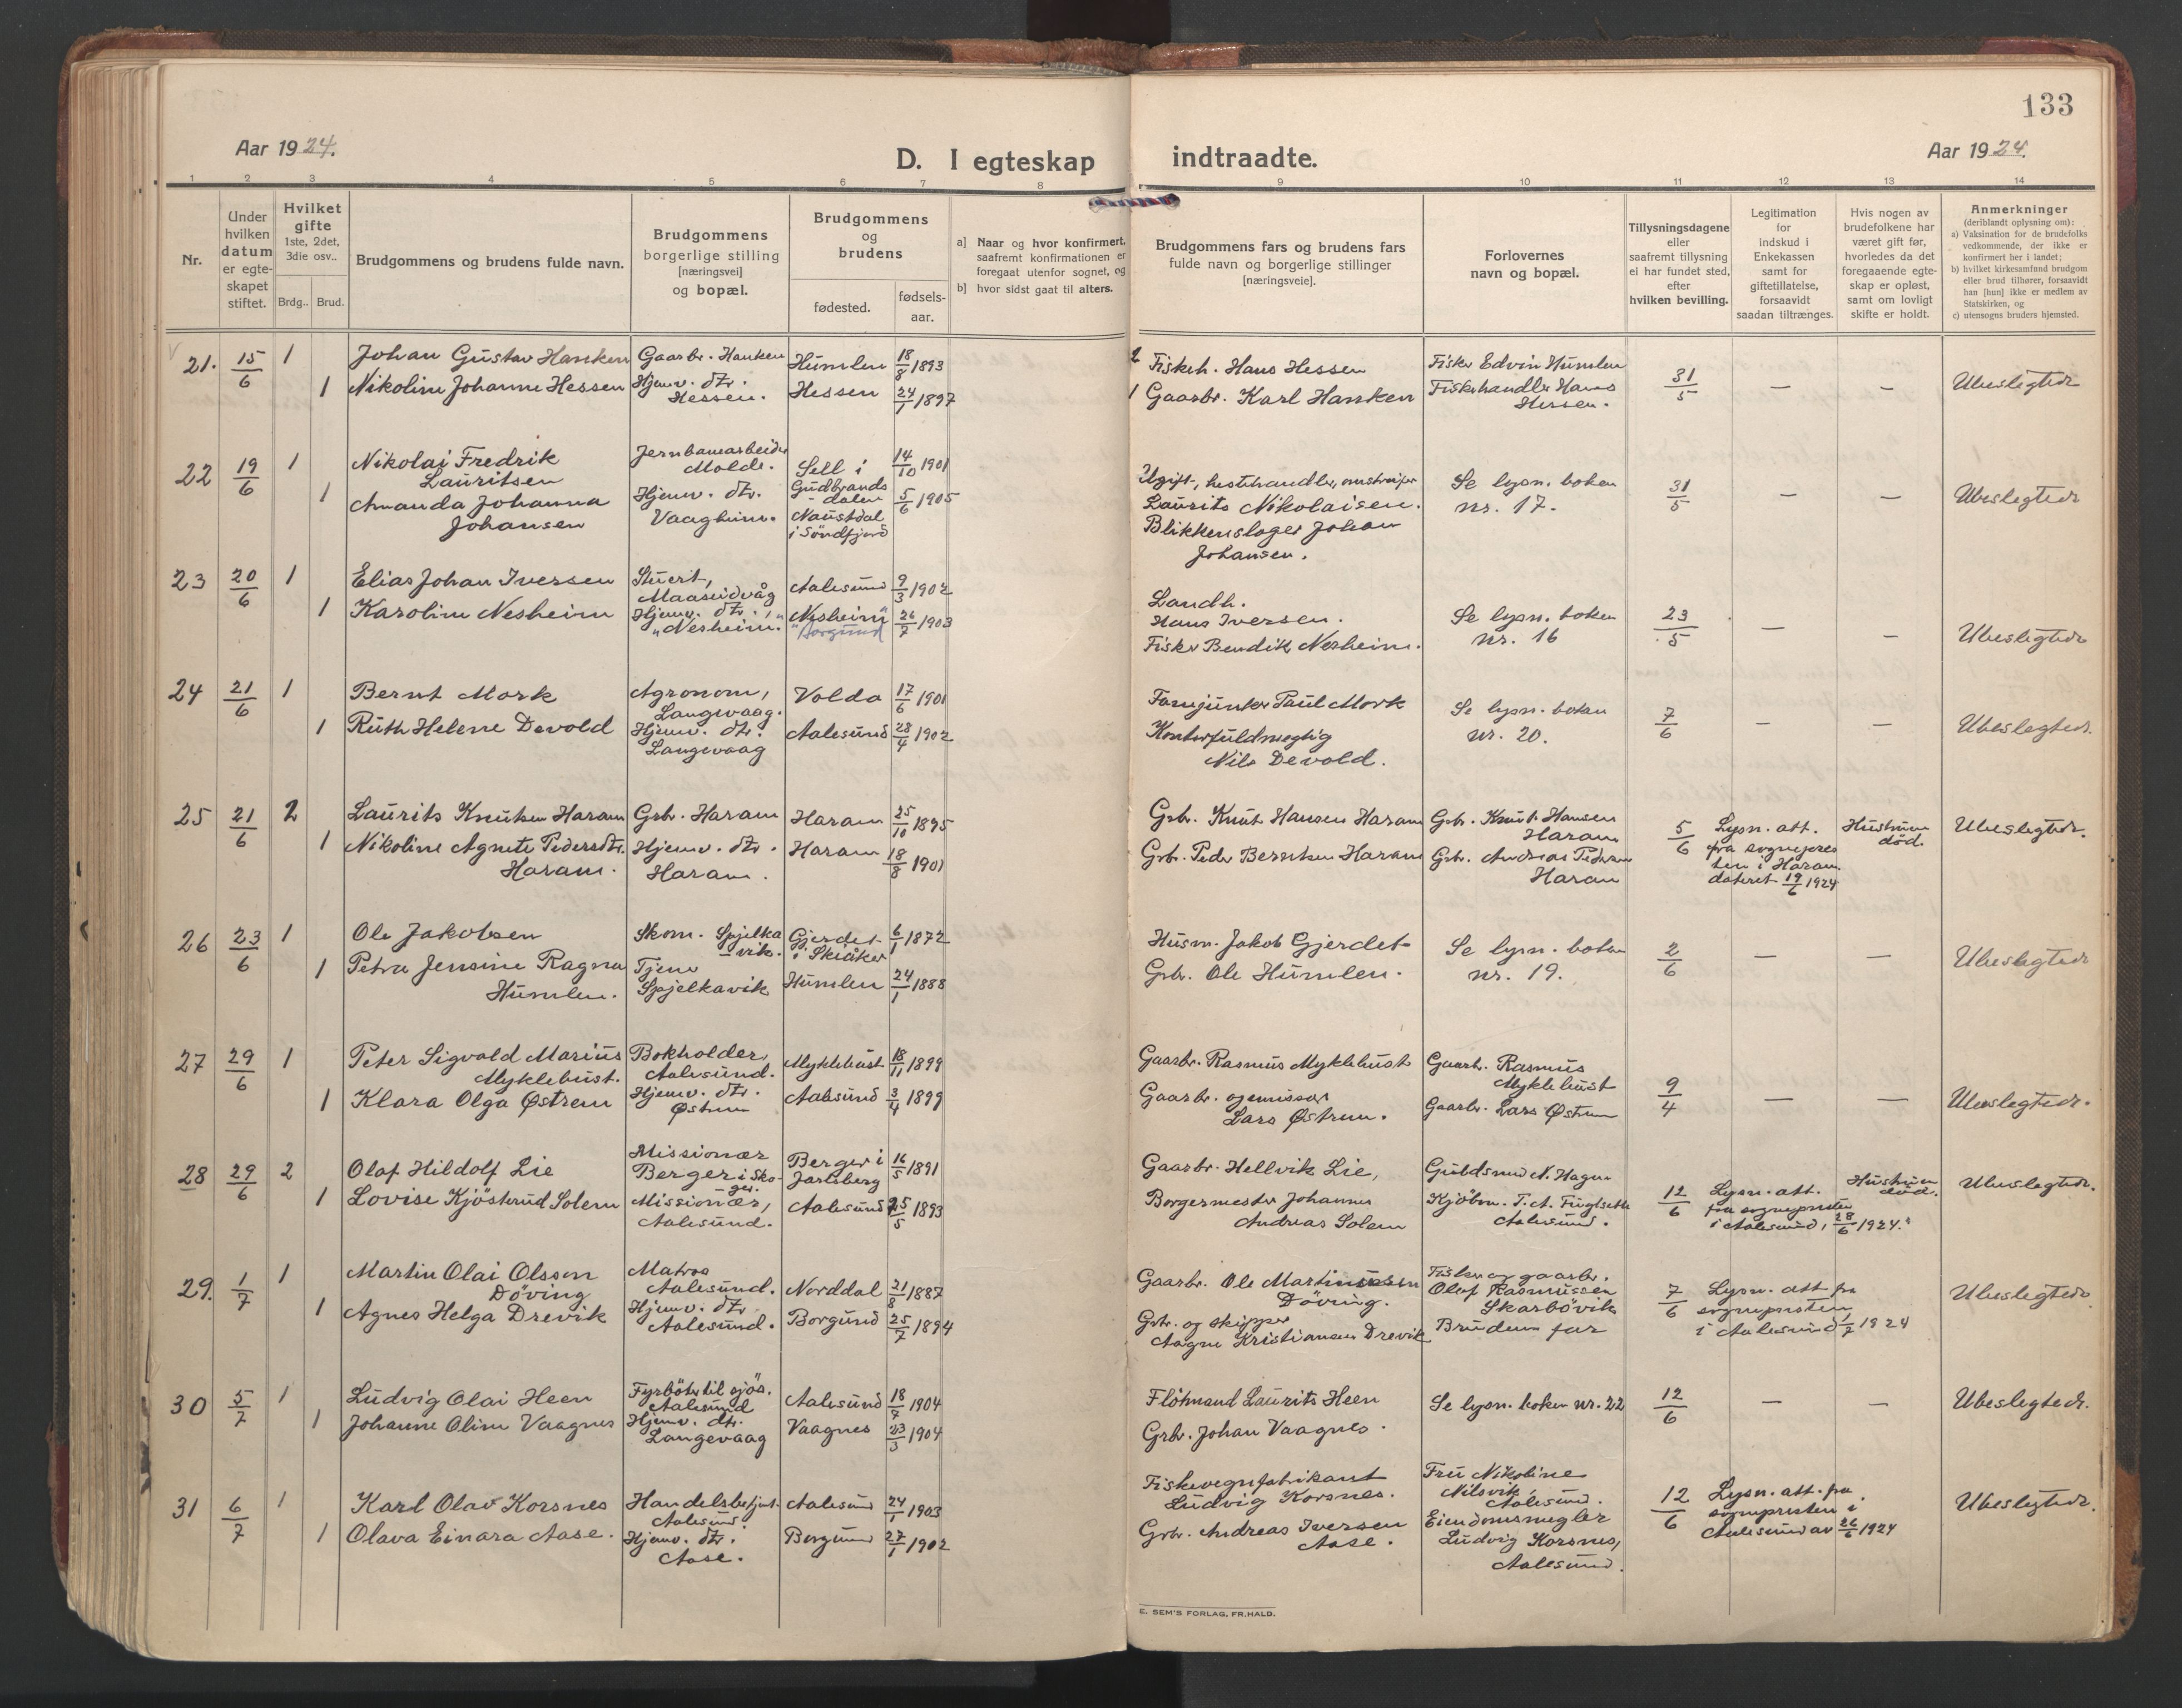 133
Aar 1924.
D. I egteskap indtraadte.
Aar 1924.
1 2 3 4 5 6 7 8 9 10 11 12 13 14
Nr.
Under hvilken datum er egteskapet stiftet.
Hvilket gifte 1ste, 2det, 3die osv..
Brdg.. Brud.
Brudgommens og brudens fulde navn.
Brudgommens borgerlige stilling [næringsvei] og bopæl.
Brudgommens og brudens
fødested. fødsels-aar.
a] Naar og hvor konfirmert, saafremt konfirmationen er foregaat utenfor sognet, og
b] hvor sidst gaat til alters.
Brudgommens fars og brudens fars fulde navn og borgerlige stillinger [næringsveie].
Forlovernes navn og bopæl.
Tillysningsdagene eller saafremt tillysning ei har fundet sted, efter hvilken bevilling.
Legitimation for indskud i Enkekassen samt for giftetillatelse, forsaavidt saadan tiltrænges.
Hvis nogen av brudefolkene har været gift før, hvorledes da det foregaaende egteskap er opløst, samt om lovligt skifte er holdt.
Anmerkninger
(deriblandt oplysning om):
a) Vaksination for de brudefolks vedkommende, der ikke er konfirmert her i landet;
b) hvilket kirkesamfund brudgom eller brud tilhører, forsaavidt han [hun] ikke er medlem av Statskirken, og
c) utensogns bruders hjemsted.
21. 15/6 1 Johan Gustav Hanken Gaarbr. Hanken Humlen 18/8 1893
1 Nikoline Johanne Hessen Hjemv. dtr. Hessen. Hessen 24/1 1897
2 Fiskeh. Hans Hessen
1 Gaarbr. Karl Hanken
Fisker Edvin Humlen
Fiskehandler Hans Hessen.
31/5 — — Ubeslegtede
22 19/6 1 Nikolai Fredrik Lauritsen Jernbanearbeider Molde. Sell i Gudbrandsdalen 14/10 1901
1 Amanda Johanna Johansen Hjemv. dtr. Vaagheim. Naustdal i Söndfjord 5/6 1905
Ugift, hestehandler, omstreifer
Laurits Nikolaisen.
Blikkenslager Johan Johansen.
Se lysn. boken nr. 17.
31/5 — — Ubeslegtede
23 20/6 1 Elias Johan Iversen Stuert, Maaseidvåg Aalesund 9/3 1902
1 Karoline Nesheim Hjemv. dtr. "Nesheim." "Nesheim" "Borgund 26/7 1903
Landh. Hans Iversen.
Fisker Bendik Nesheim.
Se lysn. boken nr. 16
23/5 — — Ubeslegtede
24 21/6 1 Bernt Mork Agronom, Langevaag. Volda 17/6 1901
1 Ruth Helene Devold Hjemv. dtr. Langevaag Aalesund 28/4 1902
Fanejunker Paul Mork
Kontorfuldmegtig Nils Devold.
Se lysn. boken nr. 20.
7/6 — — Ubeslegtede.
25 21/6 2 Laurits Knutsen Haram Gbr. Haram Haram 25/10 1895
1 Nikoline Agnete Pedersdtr. Haram. Hjemv. dtr. Haram. Haram 18/8 1901
Gbr. Knut Hansen Haram
Gbr. Peder Berntsen Haram
Gbr. Knut Hansen Haram
Gbr. Andreas Pedersen Haram
5/6 Lysn. att. fra sognepresten i Haram dateret 19/6 1924
Hustruen död. Ubeslegtede.
26 23/6 1 Ole Jakobsen Skom. Spjelkavik. Gjerdet i Skiåker 6/1 1872
1 Petra Jensine Ragna Humlen. Tjene Spjelkavik Humlen 24/1 1888
Husm. Jakob Gjerdet
Gbr. Ole Humlen.
Se lysn. boken nr. 19.
2/6 — — Ubeslegtede
27 29/6 1 Peter Sigvald Marius Myklebust. Bokholder, Aalesund. Myklebust 18/11 1899
1 Klara Olga Østrem Hjemv. dtr. Østrem Aalesund 3/4 1899
Gaarbr. Rasmus Myklebust
Gaarbr. og emissær Lars Østrem.
Gaarb. Rasmus Myklebust
Gaarbr. Lars Østrem
9/4 — — Ubeslegtede.
28 29/6 2 Olaf Hildolf Lie Missionær Berger i Skoger. Berger i Jarlsberg 16/5 1891
1 Lovise Kjöstrud Solem Missionær, Aalesund. Aalesund 25/5 1893
Gaarbr. Hellvik Lie,
Borgermester Johannes Andreas Solem
Guldsmed N. Hagen
Kjöbm. T. A. Fuglseth Aalesund.
12/6 Lysn. att. fra sognepresten i Aalesund, 28/6 1924.
Hustruen död. Ubeslegtede.
29. 1/7 1 Martin Olai Olsson Döving Matros Aalesund. Norddal 21/8 1887
1 Agnes Helga Drevik Hjemv. dtr. Aalesund. Borgund 25/7 1894
Gaarbr. Ole Martinussen Döving.
Gbr. og skipper Aagne Kristiansen Drevik
Fisker og gaarbr. Olaf Rasmussen Skarbövik
Brudens far
7/6 Lysn. att fra sognepresten i Aalesund 1/7 1924
Ubeslegtede
30 5/7 1 Ludvig Olai Heen Fyrböter til sjös. Aalesund Aalesund 18/7 1904
1 Johanne Oline Vaagnes Hjemv. dtr. Langevaag Vaagnes 23/3 1904
Flötmand Laurits Heen
Grbr. Johan Vaagnes.
Se lysn. boken nr. 22
12/6 — — Ubeslegtede.
31 6/7 1 Karl Olav Korsnes Handelsbetjent Aalesund. Aalesund 24/1 1903
1 Olava Einara Aase. Hjemv. dtr. Aase. Borgund 27/1 1902
Fiskevegnfabrikant Ludvig Korsnes.
Grbr. Andreas Iversen Aase.
Fru Nikoline Nilsvik, Aalesund.
Eiendomsmegler Ludvig Korsnes, Aalesund.
12/6 Lysn. att. fra sognepresten i Aalesund av 26/6 1924
Ubeslegtede.
E. SEM'S FORLAG, FR.HALD.